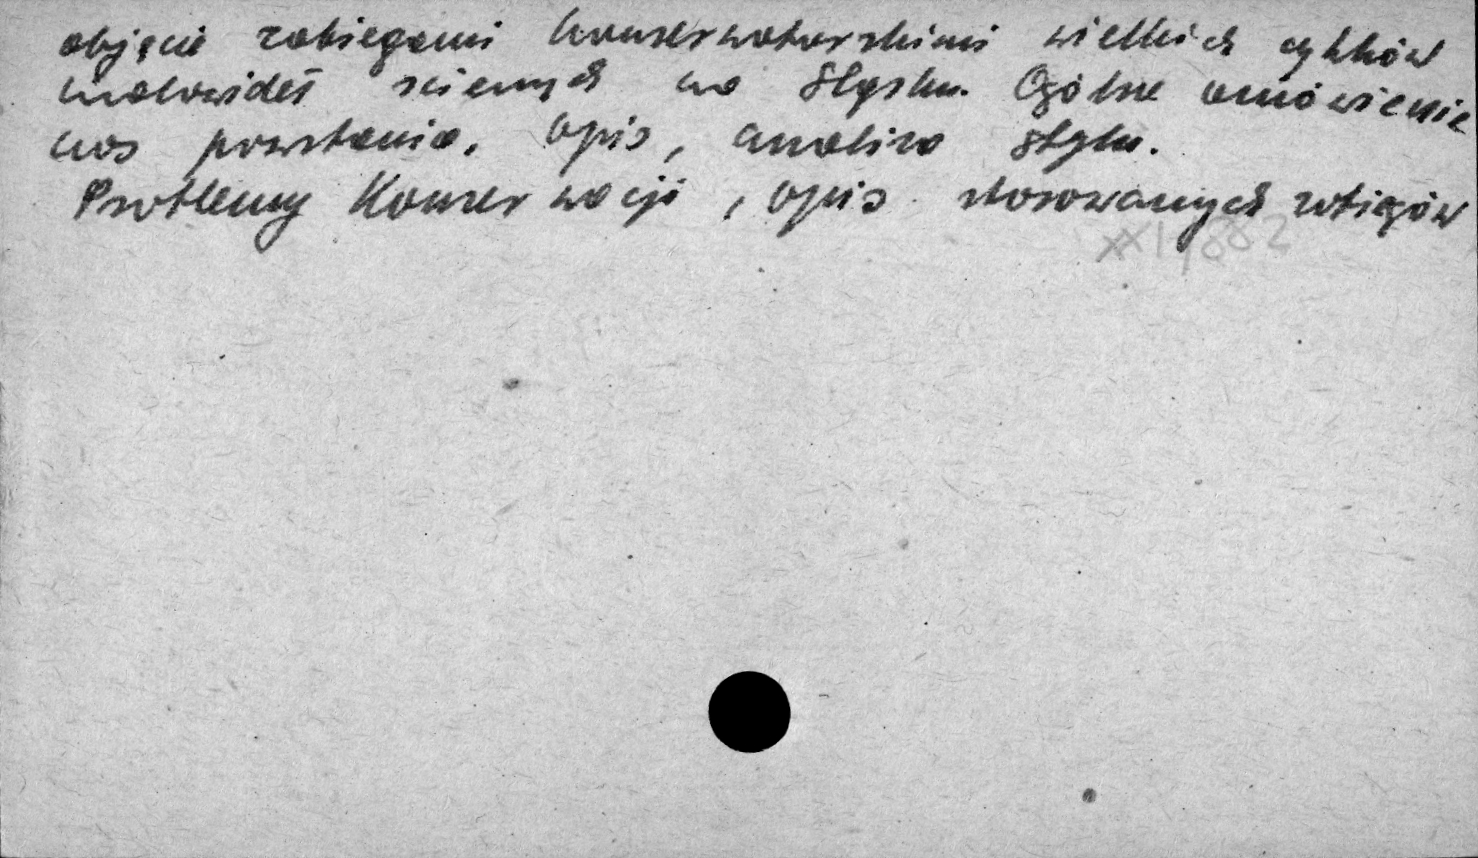 objęcie zabiegami konserwatorskimi wielkich cyklów
malowideł ściennych na Śląsku. Ogólne omówienie
czas powstania. Opis, analiza stylu.
Problemy Konserwacji, opis stosowanych zabiegów
XXI, 882